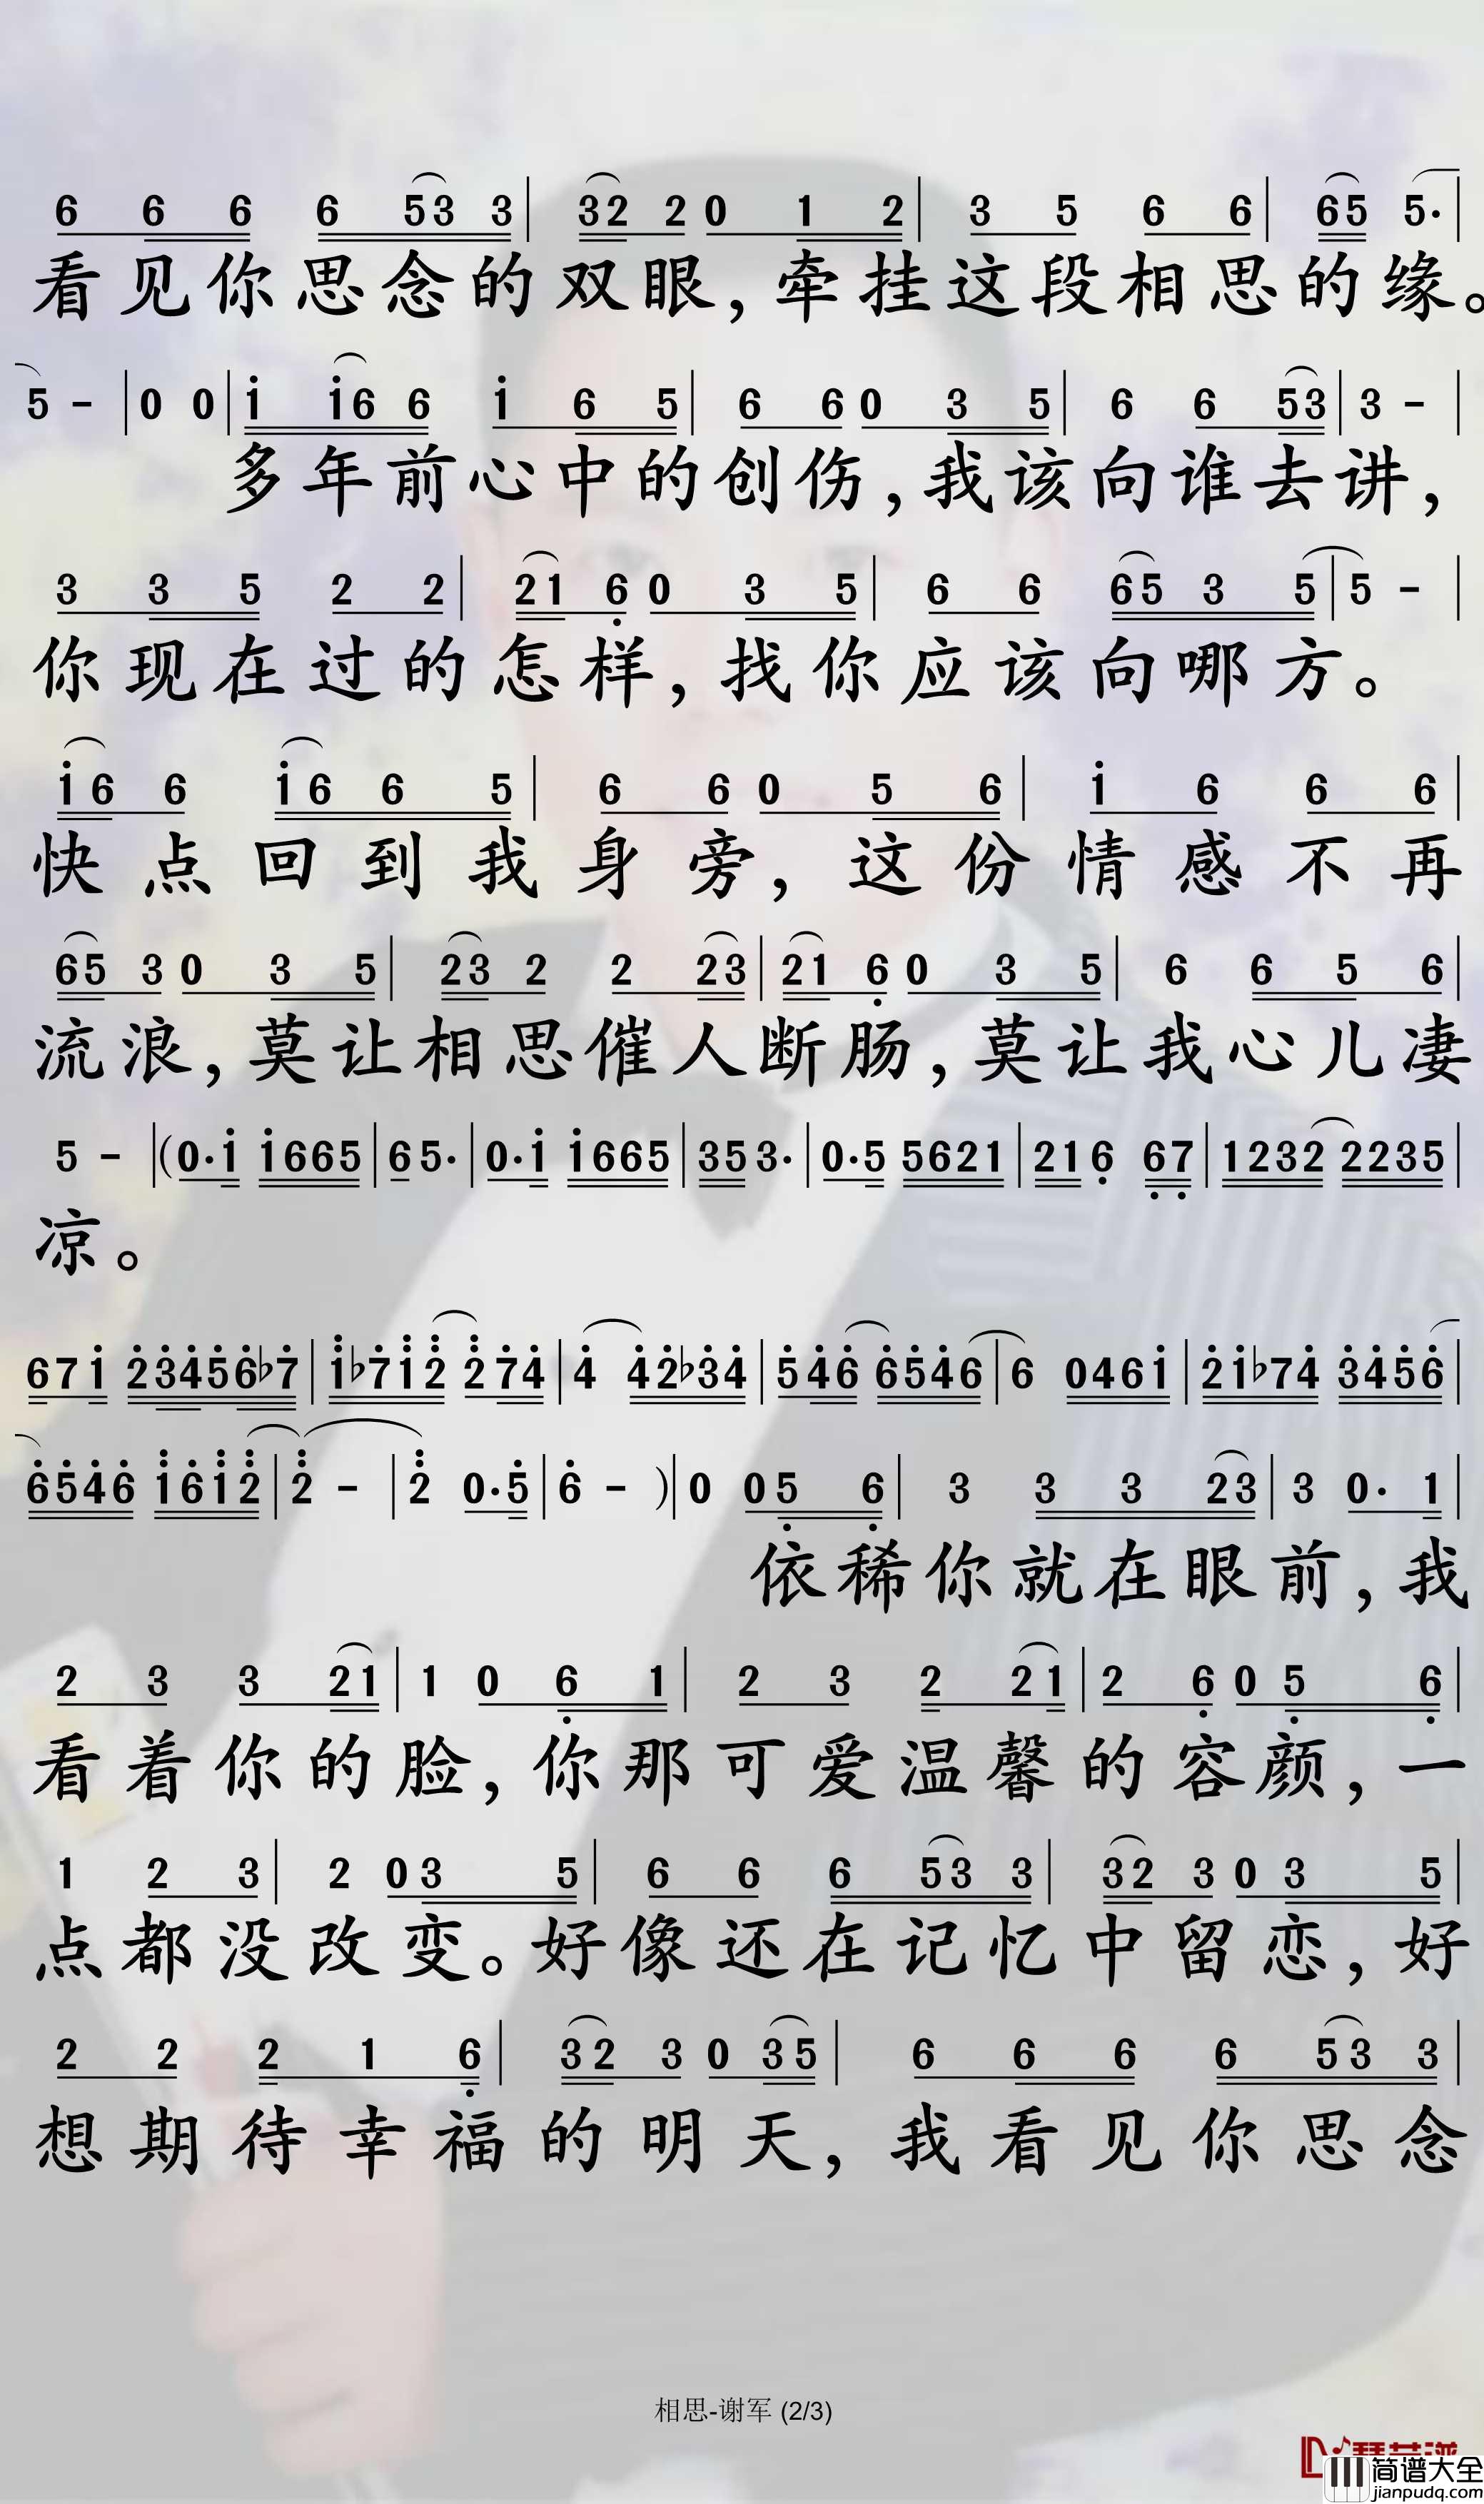 6 6 6 6 5 3 3 | 3 2 2 0 1 2 | 3 5 6 6 | 6 5 5· |
看见你思念的双眼，牵挂这段相思的缘。
5 - | 0 0 | 1 1 6 6 1 6 5 | 6 6 0 3 5 | 6 6 5 3 | 3 - |
多年前心中的创伤，我该向谁去讲，
3 3 5 2 2 | 2 1 6 0 3 5 | 6 6 6 5 3 5 | 5 - |
你现在过的怎样，找你应该向哪方。
1 6 6 1 6 6 5 | 6 6 0 5 6 | 1 6 6 6 |
快点回到我身旁，这份情感不再
6 5 3 0 3 5 | 2 3 2 2 2 3 | 2 1 6 0 3 5 | 6 6 5 6 |
流浪，莫让相思催人断肠，莫让我心儿凄
5 - | (0·1 1665 | 6 5· | 0·1 1665 | 35 3· | 0·5 5621 | 21 6 67 | 1232 2235 |
凉。
671 23456♭7 | 1♭712 274 | 4 42♭34 | 546 6546 | 6 0461 | 21♭74 3456 |
6546 1612 | 2 - | 2 0·5 | 6 - ) | 0 0 5 6 | 3 3 3 2 3 | 3 0· 1 |
依稀你就在眼前，我
2 3 3 2 1 | 1 0 6 1 | 2 3 2 2 1 | 2 6 0 5 6 |
看着你的脸，你那可爱温馨的容颜，一
1 2 3 | 2 0 3 5 | 6 6 6 5 3 3 | 3 2 3 0 3 5 |
点都没改变。好像还在记忆中留恋，好
2 2 2 1 6 | 3 2 3 0 3 5 | 6 6 6 6 5 3 3 |
想期待幸福的明天，我看见你思念
相思-谢军 (2/3)
简谱大全
jianpudq.com